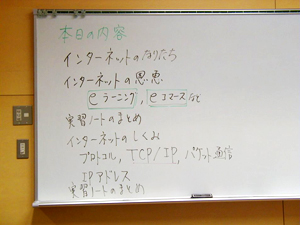 本日の内容
インターネットのなりたち
インターネットの恩恵
eラーニング, eコマースなど
実習ノートのまとめ
インターネットのしくみ
プロトコル, TCP/IP, パケット通信
IPアドレス
実習ノートのまとめ